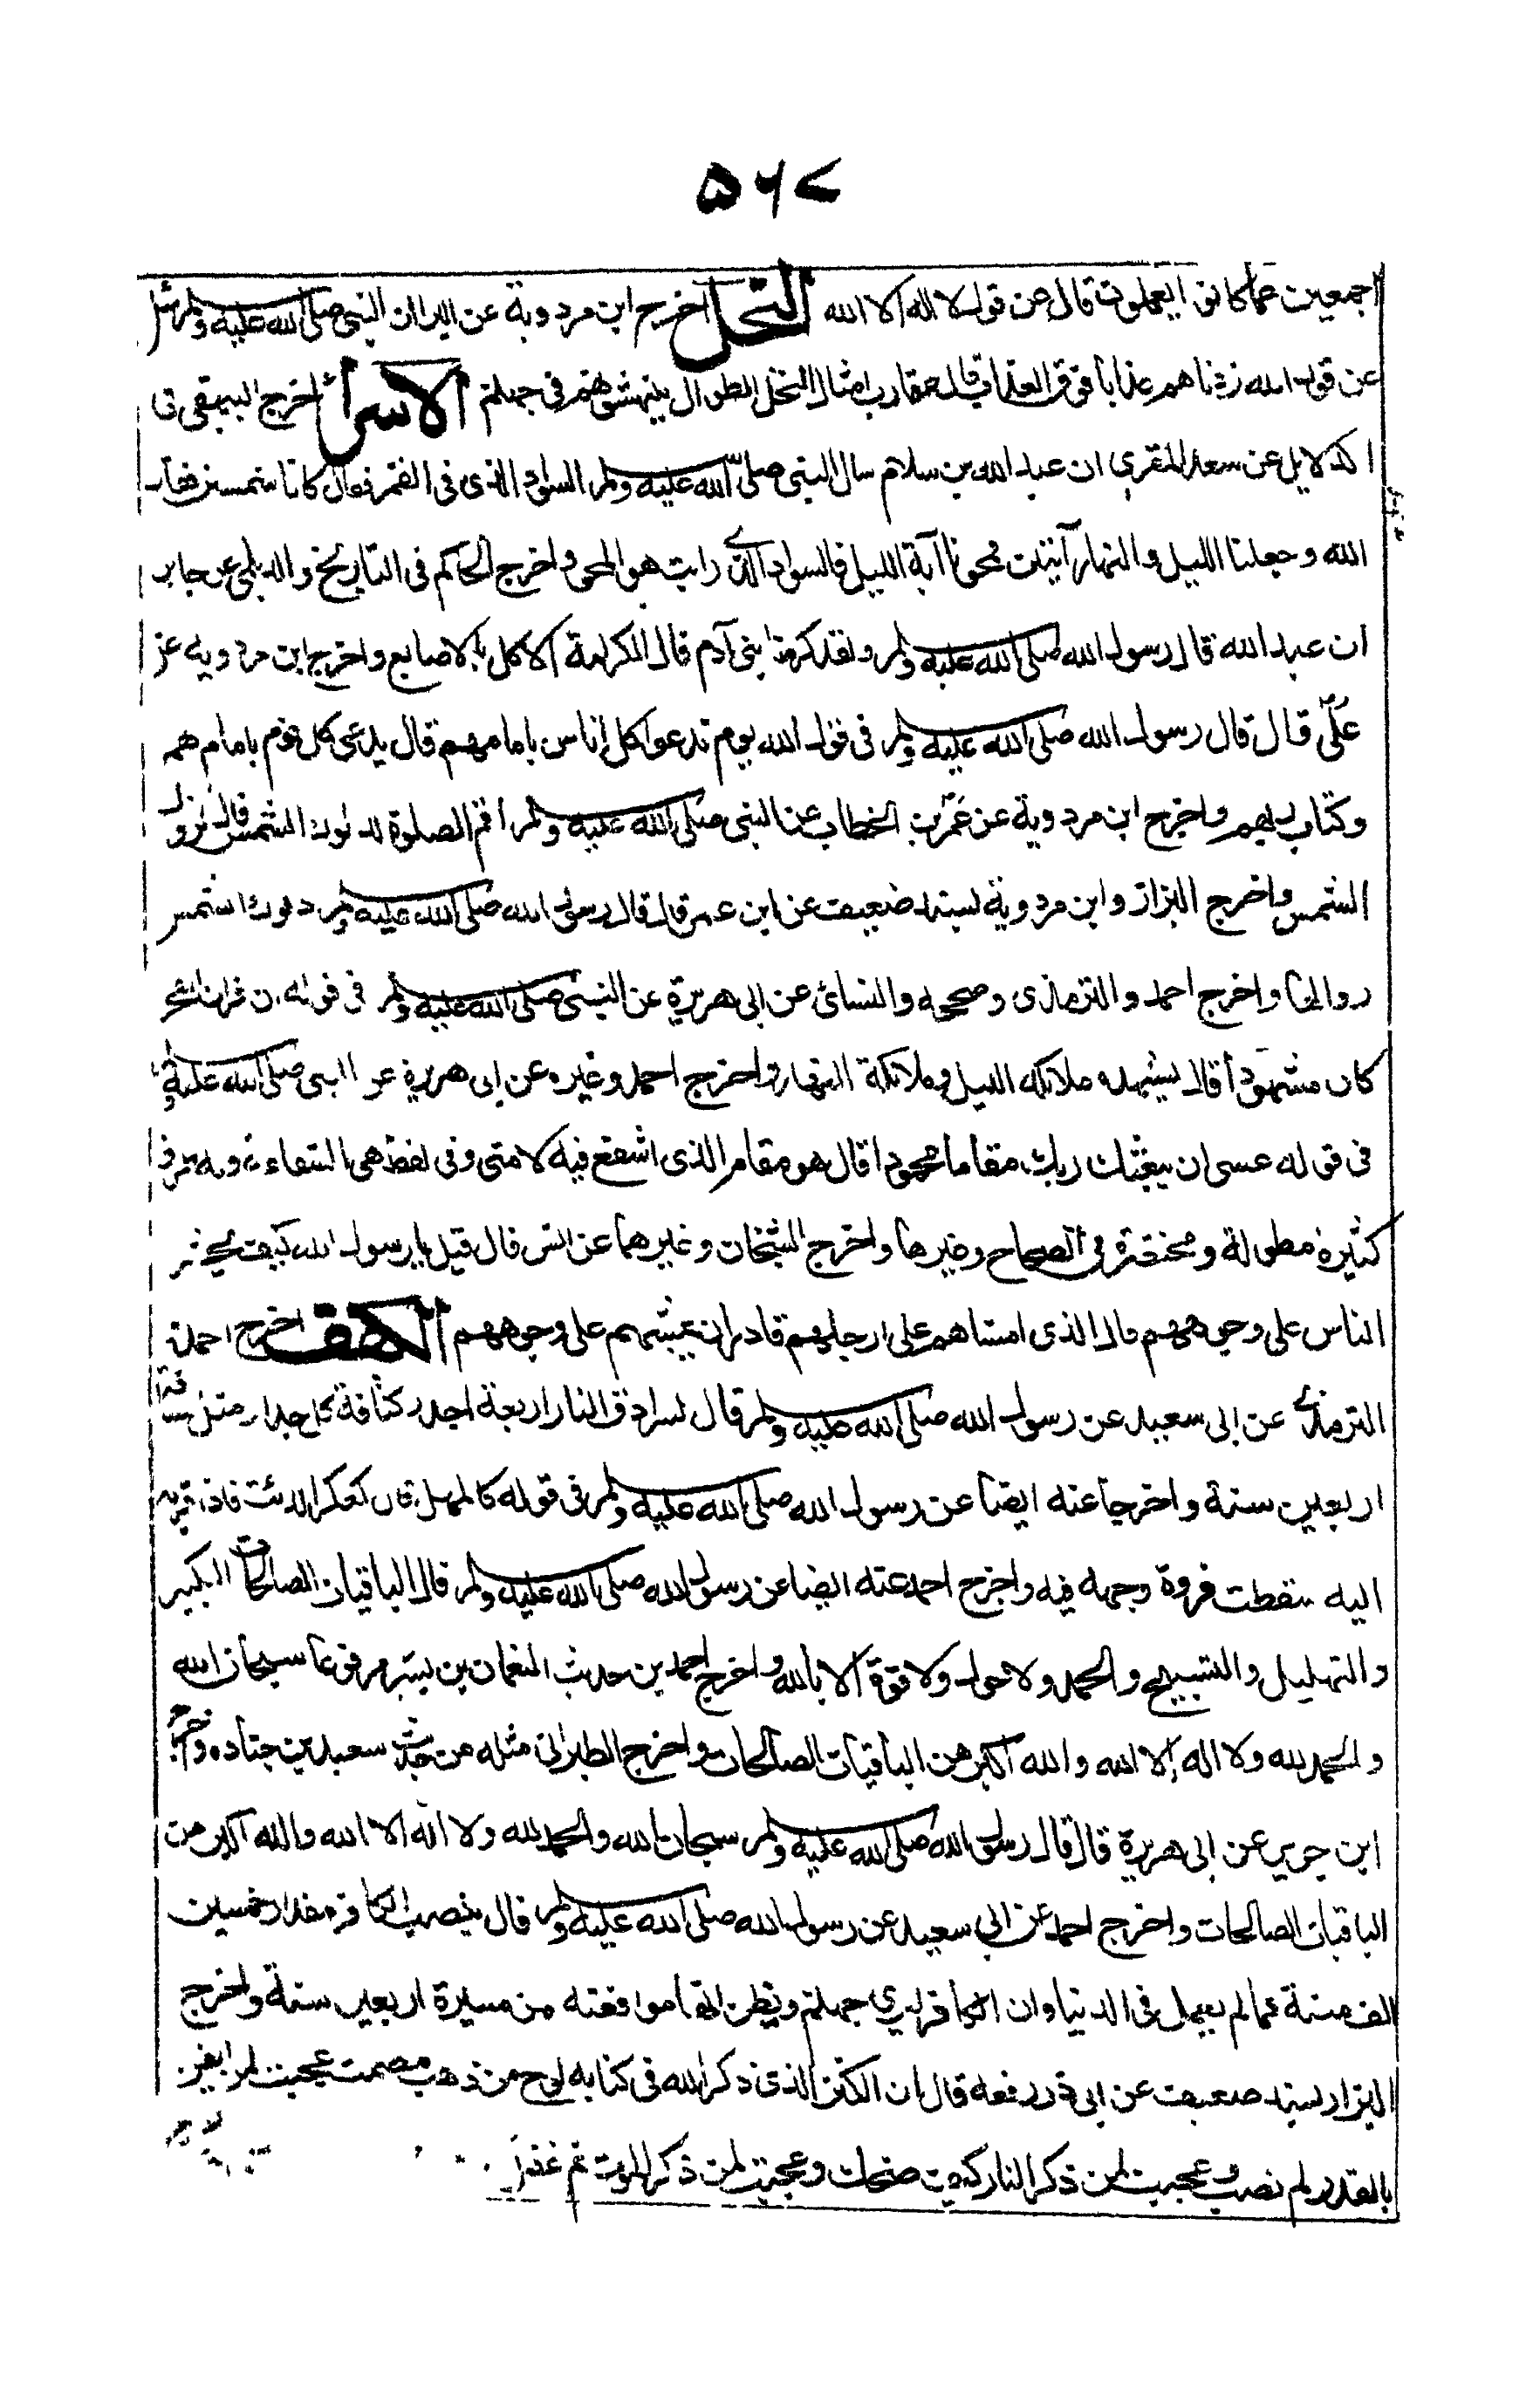 ۵۶۷
اجمعين عما كانوا يعملون قال عن قول لا اله الا الله النحل اخرج ابن مردوية عن البراء ان النبى صلى الله عليه ولم سئل
عن قول الله زدناهم عذابا فوق العذاب قال عقارب امثال النخل الطوال ينهشونهم فى جهنم الاسرأ اخرج البيهقى فى
الدلايل عن سعد المقرى ان عبد الله بن سلام سال النبى صلى الله عليه ولم السواد الذى فى القمر فقال كانا شمسين فقال
الله وجعلنا الليل والنهار آيتين فمحونا آية الليل فالسواد الذى رايت هو المحو واخرج الحاكم فى التاريخ والديلمى عن جابر
ابن عبد الله قال رسول الله صلى الله عليه ولم ولقد كرمنا بنى آدم قال الكرامة الاكل بالاصابع واخرج ابن مردويه عن
على قال قال رسول الله صلى الله عليه ولم فى قول الله يوم ندعوا كل اناس بامامهم قال يدعى كل قوم بامام هم
وكتاب ربهم واخرج ابن مردوية عن عمر بن الخطاب عن النبى صلى الله عليه ولم اقم الصلوة لدلوك الشمس قال لزوال
الشمس واخرج البزاز وابن مردوية بسند ضعيف عن ابن عمر قال قال رسول الله صلى الله عليه ولم دلوك الشمس
زوالها واخرج احمد والترمذى وصححه والنسائ عن ابى هريرة عن النبى صلى الله عليه ولم فى قوله ان قران الفجر
كان مشهودا قال يشهده ملائكه الليل وملائكة النهار واخرج احمد وغيره عن ابى هريرة عن النبى صلى الله عليه
فى قوله عسى ان يبعثك ربك مقاما محمودا قال هو مقام الذى اشفع فيه لامتى وفى لفظ هى الشفاعة وله طرق
كثيرة مطولة ومختصرة فى الصحاح وغيرها واخرج الشيخان وغيرهما عن انس قال قيل يا رسول الله كيف يحشر
الناس على وجوههم قال الذى امشاهم على ارجلهم قادر ان يمشيهم على وجوههم الكهف اخرج احمد
الترمذى عن ابى سعيد عن رسول الله صلى الله عليه ولم قال لسرادق النار اربعة اجدر كثافة كل جدار مثل مسافة
اربعين سنة واخرجا عنه ايضا عن رسول الله صلى الله عليه ولم فى قوله كالمهل قال كعكر الزيت فاذا قربه
اليه سقطت فروة وجهه فيه واخرج احمد عنه ايضا عن رسول الله صلى الله عليه ولم قال الباقيات الصالحات التكبير
والتهليل والتسبيح والحمد ولا حول ولا قوة الا بالله واخرج احمد بن حديث النعمان بن بشير مرفوعا سبحان الله
والحمد لله ولا اله إلا الله والله اكبر هن الباقيات الصالحات واخرج الطبرانى مثله من حديث سعيد بن جناده واخرج
ابن جرير عن ابى هريرة قال قال رسول الله صلى الله عليه ولم سبحان الله والحمد لله ولا اله الا الله والله اكبر من
الباقيات الصالحات واخرج احمد عن ابى سعيد عن رسول الله صلى الله عليه ولم قال ينصب الكافر مقدار خمسين
الف سنة عما لم يعمل فى الدنيا وان الكافر ليرى جهنم ويظن انها مواقعته من مسيرة اربعين سنة واخرج
البزار بسند ضعيف عن ابى ذر رفعه قال ان الكنز الذى ذكر الله فى كتابه لوح من ذهب مصمت عجبت لمن ايقن
بالقدر لم نصب وعجبت لمن ذكر النار كيف ضحك وعجبت لمن ذكر الموت ثم غفل